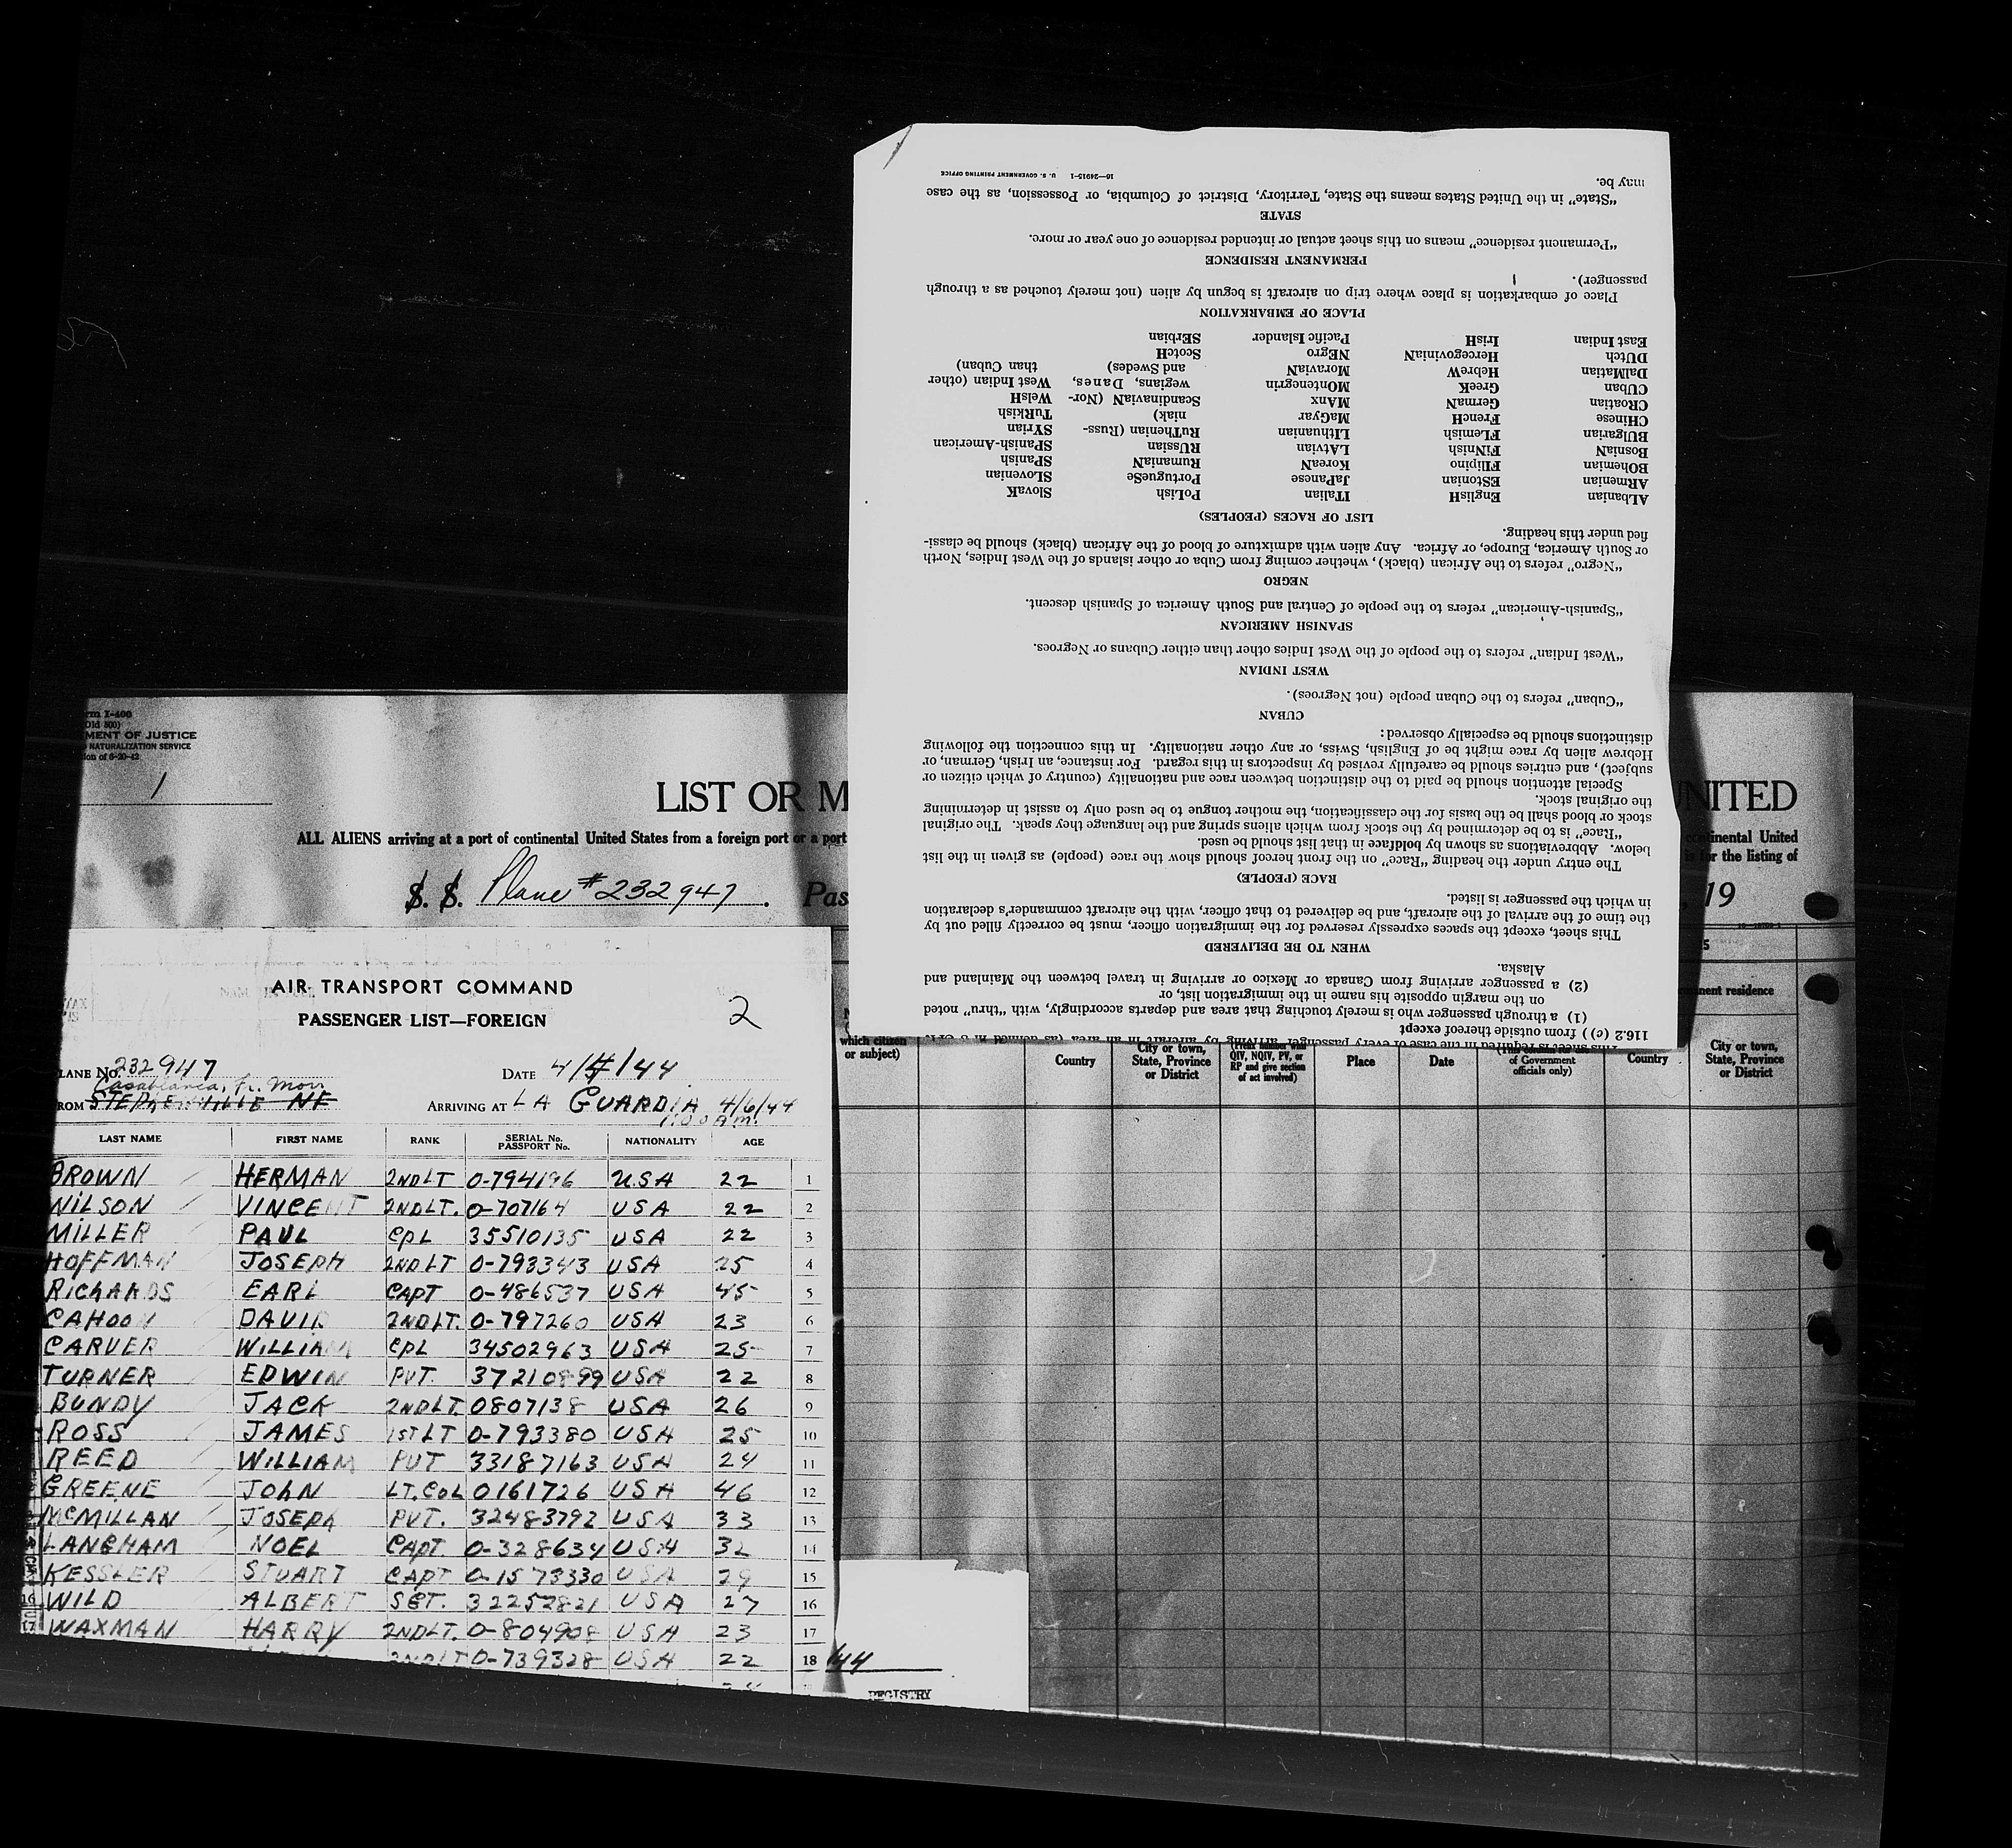 rm I-400
(Old 500)
MENT OF JUSTICE
NATURALIZATION SERVICE
ion of 6-20-42
1
LIST OR M
UNITED
ALL ALIENS arriving at a port of continental United States from a foreign port or a port
continental United
is for the listing of
S. S. Plane #232947. Pas
, 19
AIR TRANSPORT COMMAND
PASSENGER LIST—FOREIGN
2
LANE No. 232947
DATE 4/4/44
Casablanca, Fr. Morr
ROM STEPHENVILLE NF
ARRIVING AT LA GUARDIA 4/6/44
1:00 A.M.
LAST NAME FIRST NAME RANK SERIAL No. PASSPORT No. NATIONALITY AGE
BROWN HERMAN 2NDLT 0-794196 USA 22 1
WILSON VINCENT 2NDLT. 0-707164 USA 22 2
MILLER PAUL CPL 35510135 USA 22 3
HOFFMAN JOSEPH 2NDLT 0-793343 USA 25 4
RICHARDS EARL CAPT 0-486537 USA 45 5
CAHOON DAVID 2NDLT. 0-797260 USA 23 6
CARVER WILLIAM CPL 34502963 USA 25 7
TURNER EDWIN PVT. 37210899 USA 22 8
BUNDY JACK 2NDLT. 0807138 USA 26 9
ROSS JAMES 1STLT 0-793380 USA 25 10
REED WILLIAM PVT 33187163 USA 24 11
GREENE JOHN LT.COL 0161726 USA 46 12
MCMILLAN JOSEPH PVT. 32483792 USA 33 13
LANGHAM NOEL CAPT. 0-328634 USA 32 14
KESSLER STUART CAPT 0-1573330 USA 29 15
WILD ALBERT SGT. 32257821 USA 27 16
WAXMAN HARRY 2NDLT. 0-804908 USA 23 17
2NDLT 0-739328 USA 22 18
/44
REGISTRY
which citizen
or subject)
Country
City or town,
State, Province
or District
QIV, NQIV, PV, or
RP and give section
of act involved)
Place
Date
of Government
officials only)
Country
nent residence
City or town,
State, Province
or District
This sheet is required in the case of every passenger arriving by aircraft in an area (as defined in 8 CFR
116.2 (c)) from outside thereof except
(1) a through passenger who is merely touching that area and departs accordingly, with “thru” noted
on the margin opposite his name in the immigration list, or
(2) a passenger arriving from Canada or Mexico or arriving in travel between the Mainland and
Alaska.
WHEN TO BE DELIVERED
This sheet, except the spaces expressly reserved for the immigration officer, must be correctly filled out by
the time of the arrival of the aircraft, and be delivered to that officer, with the aircraft commander’s declaration
in which the passenger is listed.
RACE (PEOPLE)
The entry under the heading “Race” on the front hereof should show the race (people) as given in the list
below. Abbreviations as shown by boldface in that list should be used.
“Race” is to be determined by the stock from which aliens spring and the language they speak. The original
stock or blood shall be the basis for the classification, the mother tongue to be used only to assist in determining
the original stock.
Special attention should be paid to the distinction between race and nationality (country of which citizen or
subject), and entries should be carefully revised by inspectors in this regard. For instance, an Irish, German, or
Hebrew alien by race might be of English, Swiss, or any other nationality. In this connection the following
distinctions should be especially observed:
CUBAN
“Cuban” refers to the Cuban people (not Negroes).
WEST INDIAN
“West Indian” refers to the people of the West Indies other than either Cubans or Negroes.
SPANISH AMERICAN
“Spanish-American” refers to the people of Central and South America of Spanish descent.
NEGRO
“Negro” refers to the African (black), whether coming from Cuba or other islands of the West Indies, North
or South America, Europe, or Africa. Any alien with admixture of blood of the African (black) should be classi-
fied under this heading.
LIST OF RACES (PEOPLES)
ALbanian EnglisH ITalian PoLish SlovaK
ARmenian EStonian JaPanese PortugueSe SLovenian
BOhemian FIlipino KoreaN RumaniaN SPanish
BosniaN FiNnish LAtvian RUssian SPanish-American
BUlgarian FLemish LIthuanian RuThenian (Russ- SYrian
CHinese FrencH MaGyar niak) TuRkish
CRoatian GermaN MAnx ScandinaviaN (Nor- WelsH
CUban GreeK MOntenegrin wegians, Danes, West Indian (other
DalMatian HebreW MoraviaN and Swedes) than Cuban)
DUtch HercegoviniaN NEgro ScotcH
East Indian IrisH Pacific Islander SErbian
PLACE OF EMBARKATION
Place of embarkation is place where trip on aircraft is begun by alien (not merely touched as a through
passenger).
PERMANENT RESIDENCE
“Permanent residence” means on this sheet actual or intended residence of one year or more.
STATE
“State” in the United States means the State, Territory, District of Columbia, or Possession, as the case
may be.
16—24915-1 U. S. GOVERNMENT PRINTING OFFICE